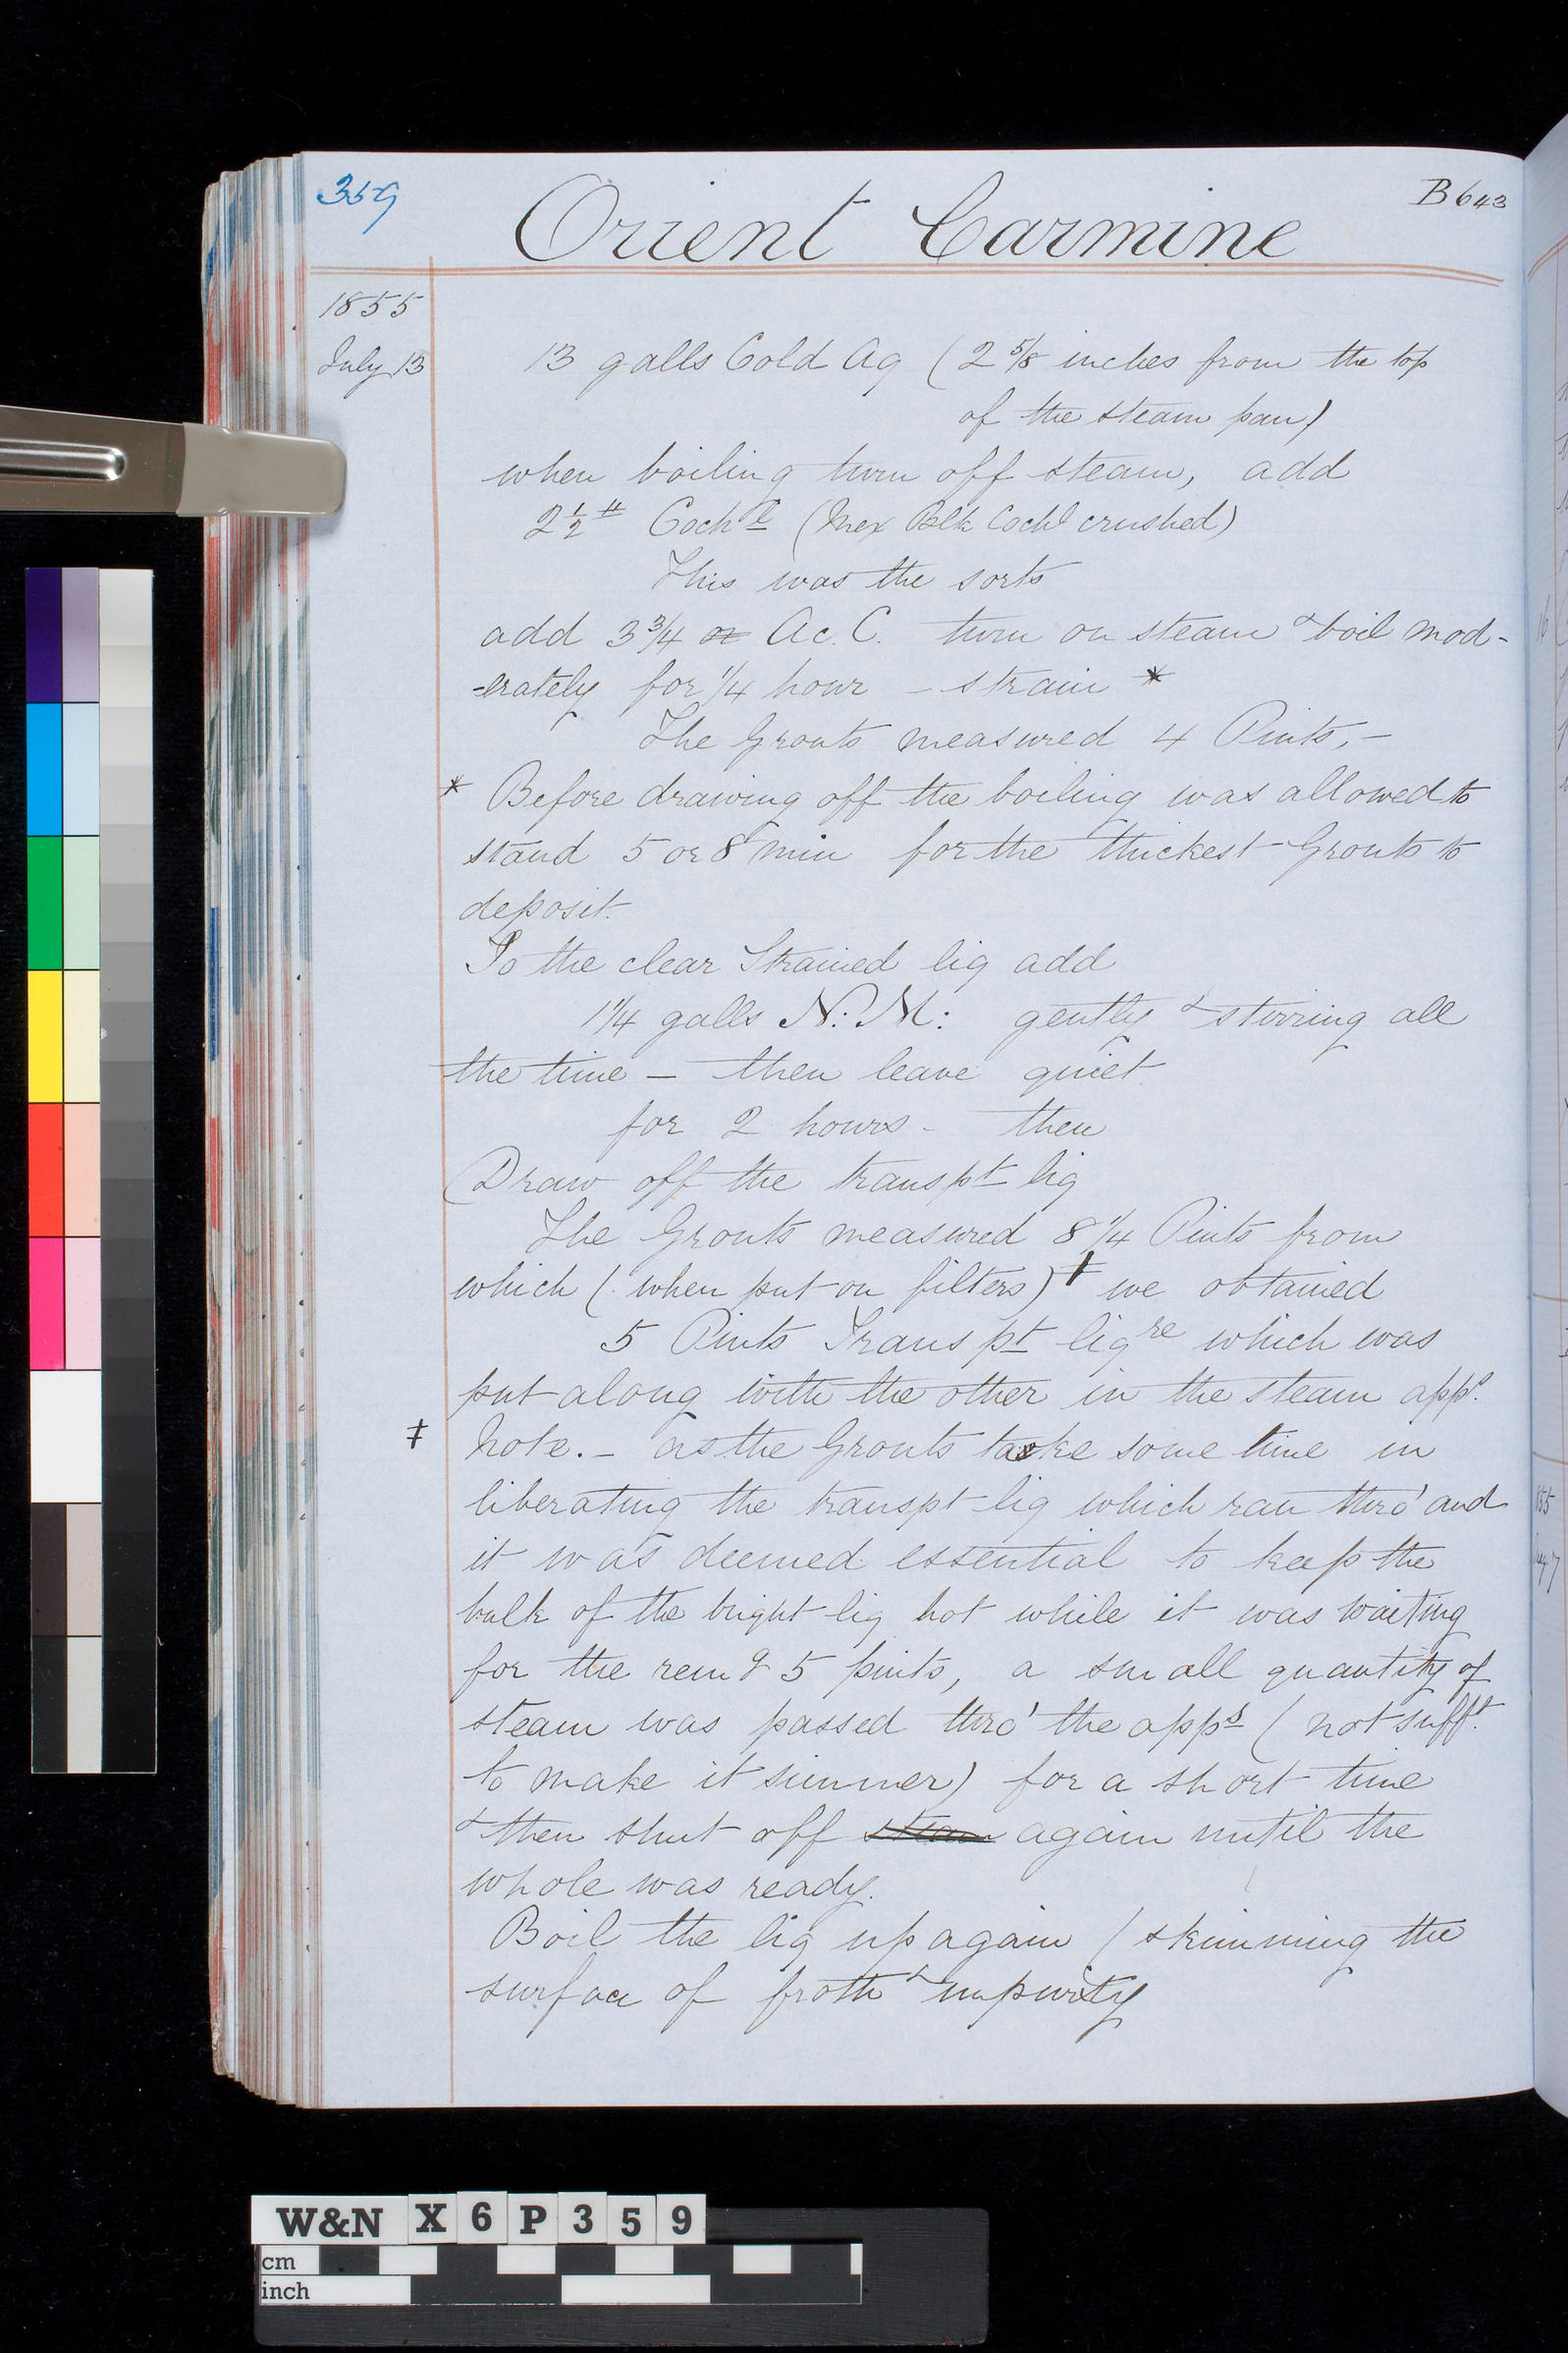 359
B 643
Orient Carmine
1855
July 13
13 galls Cold Aq (2 5/8 inches from the top
of the steam pan)
when boiling turn off steam, add
2 1/2 # Cochl (Mex Blk Cochl crushed)
This was the sorts
add 3 3/4 oz Ac. C. turn on steam & boil mod-
-erately for 1/4 hour - strain *
The Grouts measured 4 Pints, -
* Before drawing off the boiling was allowed to
stand 5 or 8 min for the thickest Grouts to
deposit.
To the clear Strained liq add
1 1/4 galls N: M: gently & stirring all
the time - then leave quiet
for 2 hours - then
Draw off the transpt liq
The Grouts measured 8 1/4 Pints from
which (when put on filters) ‡ we obtained
5 Pints Transpt liqre which was
put along with the other in the steam apps.
‡ Note. - as the Grouts take some time in
liberating the transpt liq which ran thro' and
it was deemed essential to keep the
bulk of the bright liq hot while it was waiting
for the remg 5 pints, a small quantity of
steam was passed thro' the apps (not sufft.
to make it simmer) for a short time
& then shut off steam again until the
whole was ready.
Boil the liq up again (skimming the
surface of froth & impurity
W&N X6P359
cm
inch